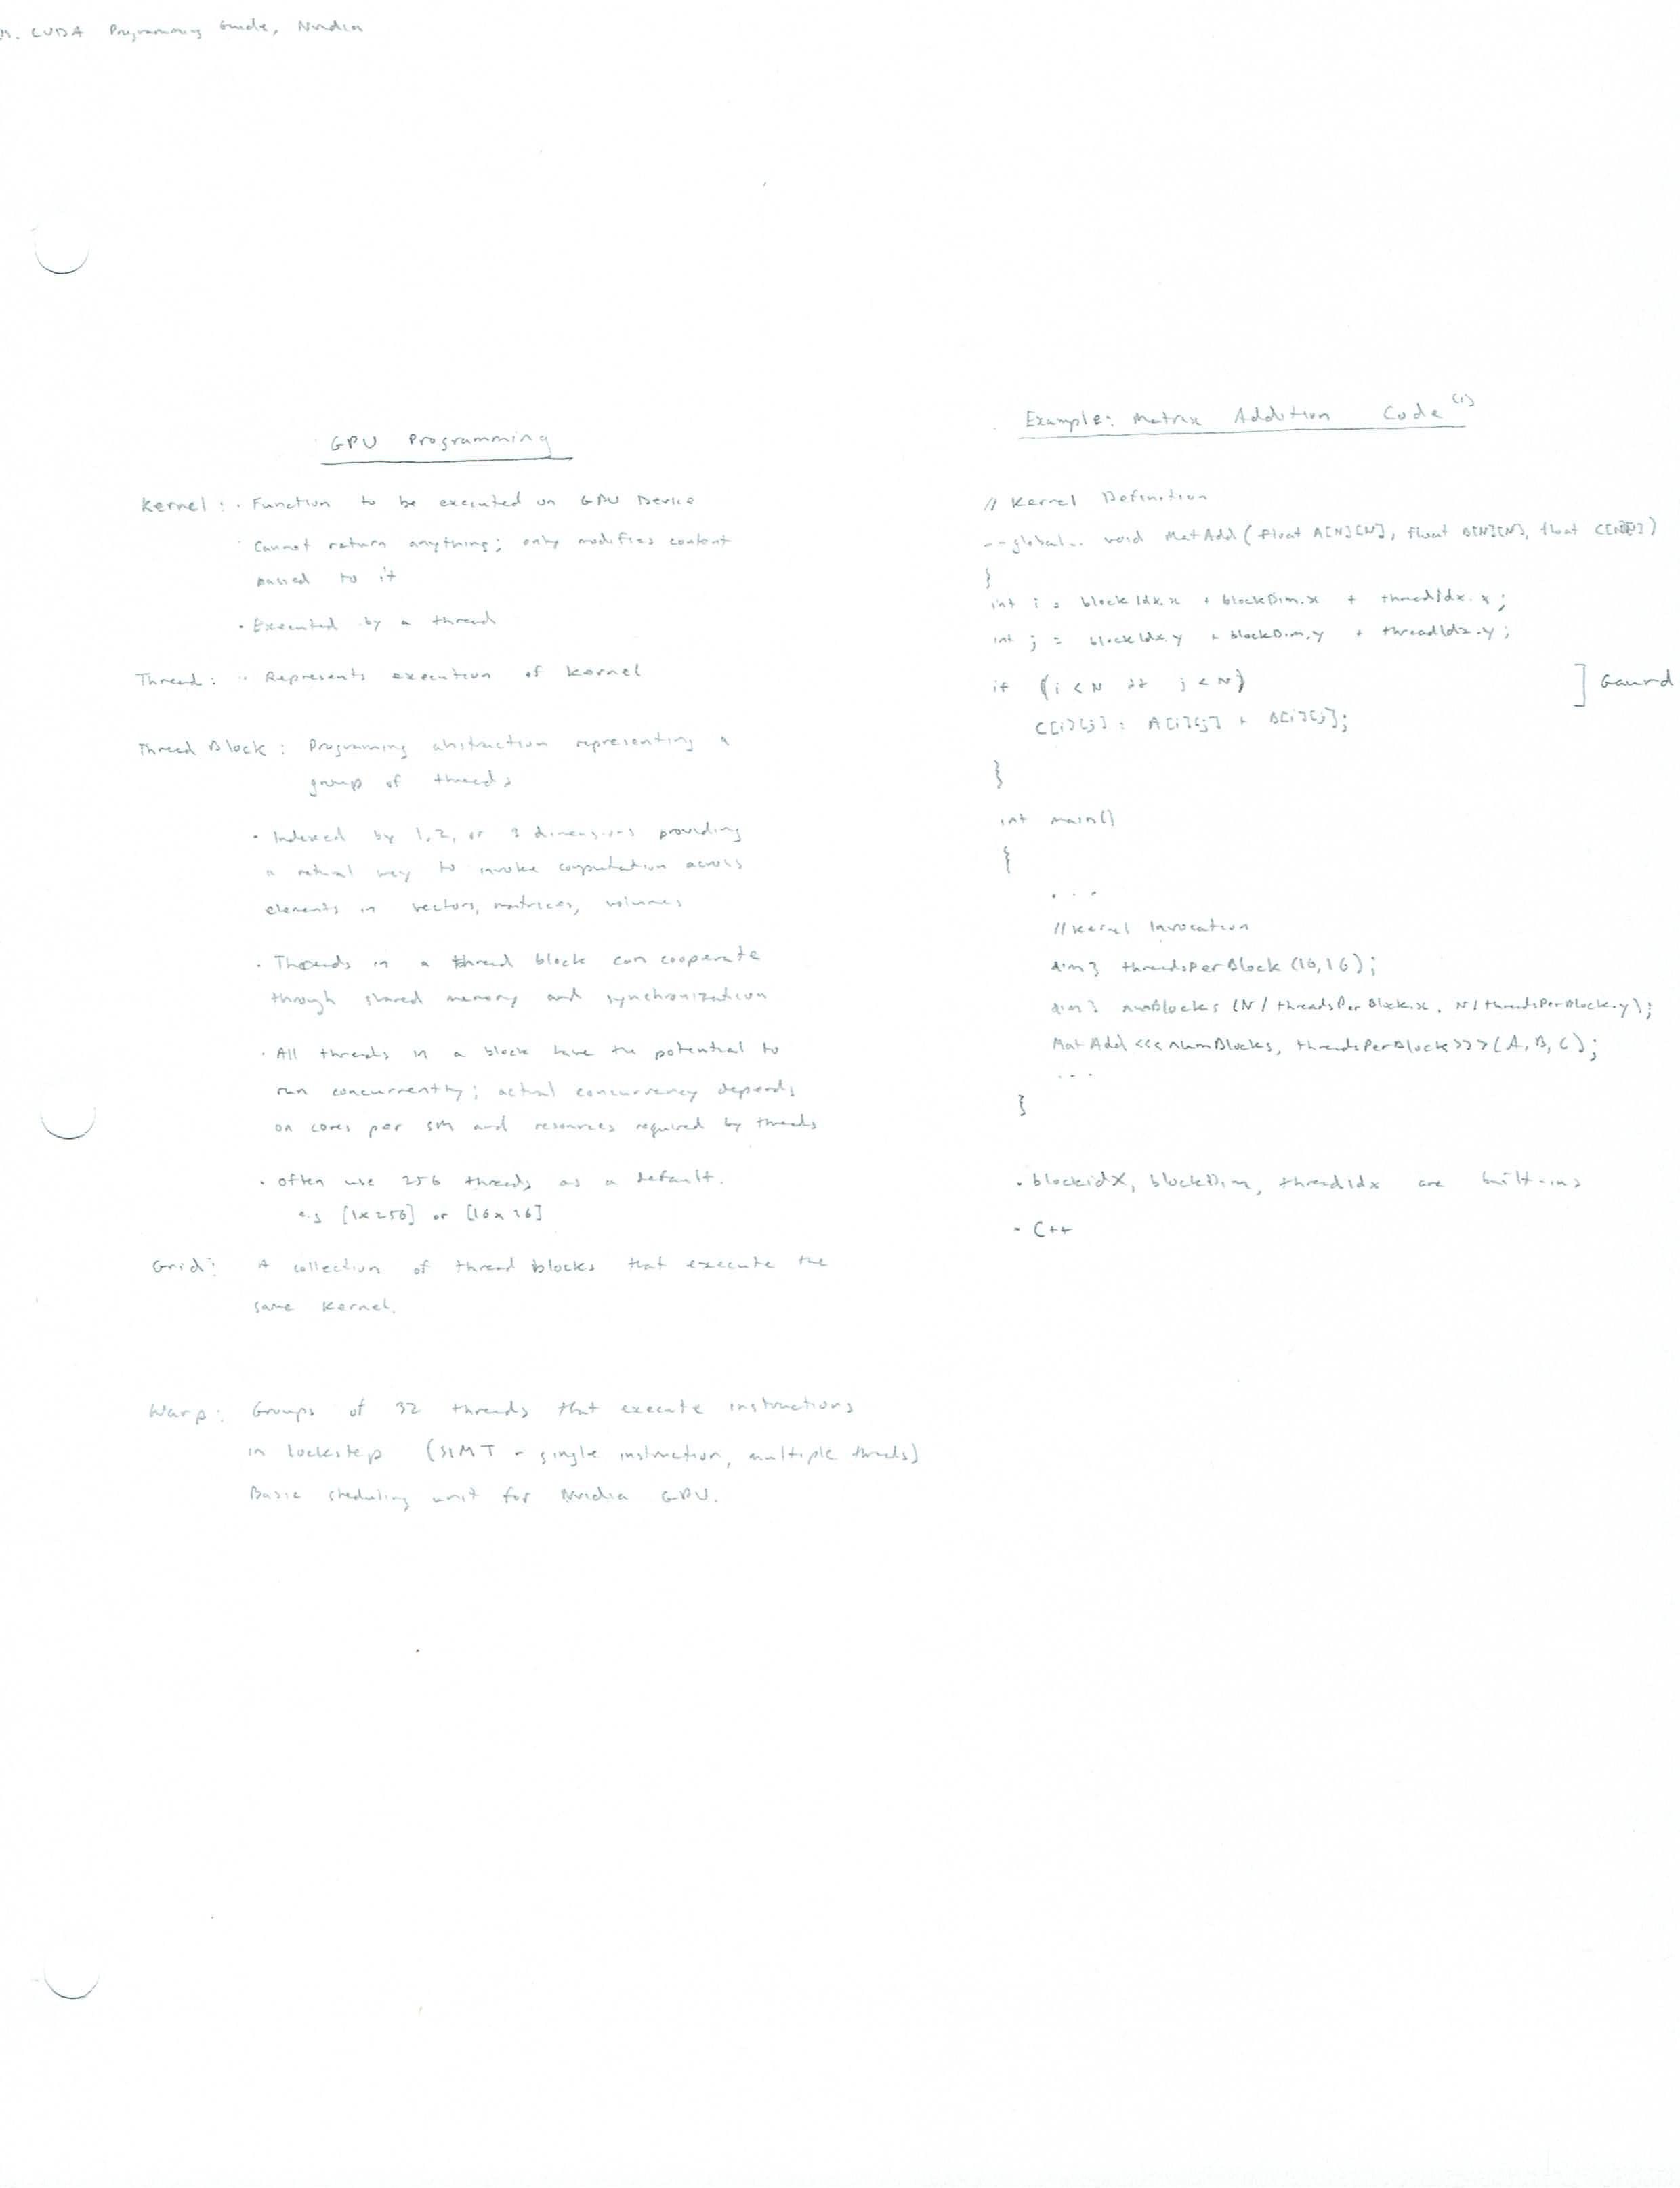 CUDA Programming Guide, Nvidia
GPU Programming
Kernel: · Function to be executed on GPU Device
· Cannot return anything; only modifies content
passed to it
· Executed by a thread
Thread: · Represents execution of kernel
Thread Block: Programming abstraction representing a
group of threads
· Indexed by 1, 2, or 3 dimensions providing
a natural way to invoke computation across
elements in vectors, matrices, volumes
· Threads in a thread block can cooperate
through shared memory and synchronization
· All threads in a block have the potential to
run concurrently; actual concurrency depends
on cores per SM and resources required by threads
· often use 256 threads as a default.
e.g [1x256] or [16x16]
Grid: A collection of thread blocks that execute the
same kernel.
Warp: Groups of 32 threads that execute instructions
in lockstep (SIMT - single instruction, multiple threads)
Basic sheduling unit for Nvidia GPU.
Example: Matrix Addition Code (1)
// Kernel Definition
__global__ void MatAdd (float A[N][N], float B[N][N], float C[N][N])
{
int i = blockIdx.x * blockDim.x + threadIdx.x;
int j = blockIdx.y * blockDim.y + threadIdx.y;
if (i < N && j < N) ] Gaurd
C[i][j] = A[i][j] + B[i][j];
}
int main()
{
...
// Kernel Invocation
dim3 threadsPerBlock (16, 16);
dim3 numBlocks (N / threadsPerBlock.x, N / threadsPerBlock.y);
MatAdd <<< numBlocks, threadsPerBlock >>> (A, B, C);
...
}
· blockidX, blockDim, threadIdx are built-ins
- C++